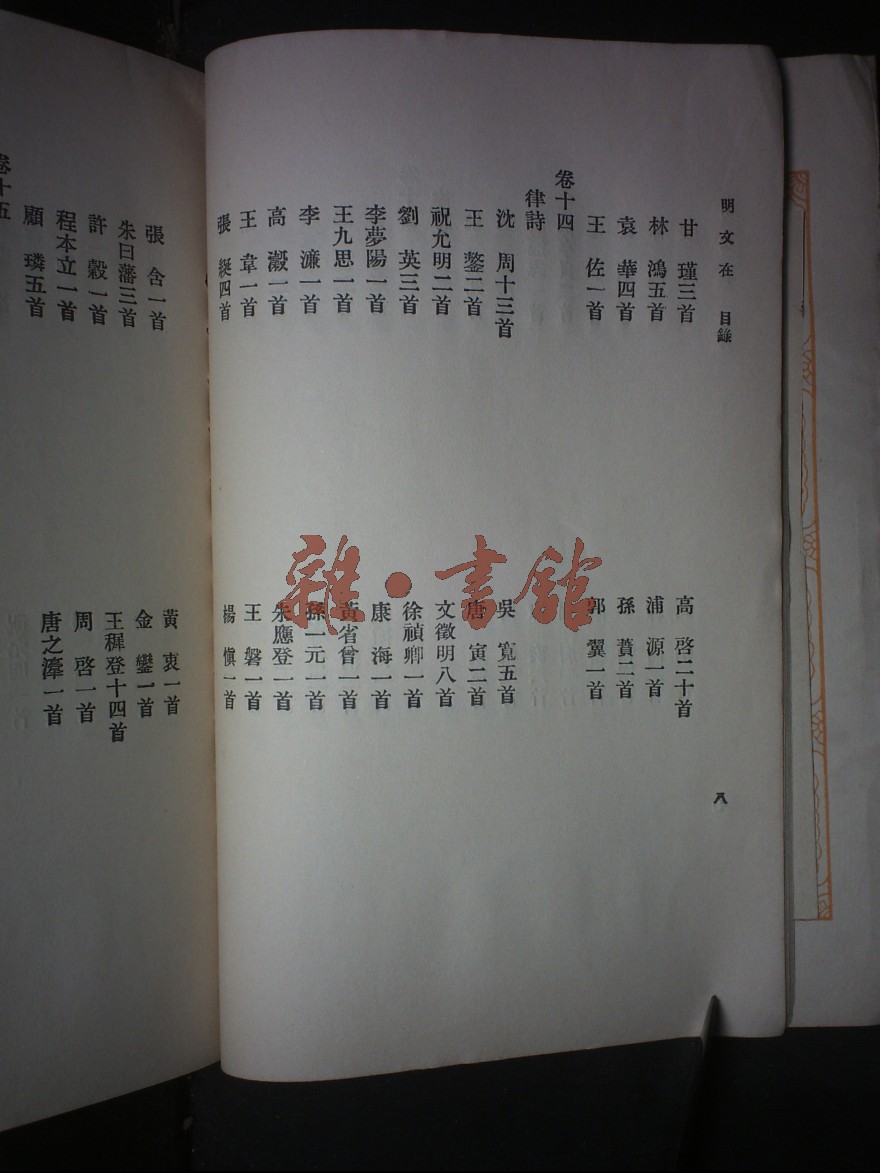 明文在 目錄
甘瑾三首 高啓二十首
林鴻五首 浦源一首
袁華四首 孫蕡二首
王佐一首 郭翼一首
卷十四
律詩
沈周十三首 吳寬五首
王鏊二首 唐寅二首
祝允明二首 文徵明八首
劉英三首 徐禎卿一首
李夢陽一首 康海一首
王九思一首 黃省曾一首
李濂一首 孫一元一首
高瀫一首 朱應登一首
王韋一首 王磐一首
張綖四首 楊愼一首
八
張含一首 黃衷一首
朱曰藩三首 金鑾一首
許穀一首 王穉登十四首
程本立一首 周啓一首
顧璘五首 唐之淳一首
卷十五
雜·書館